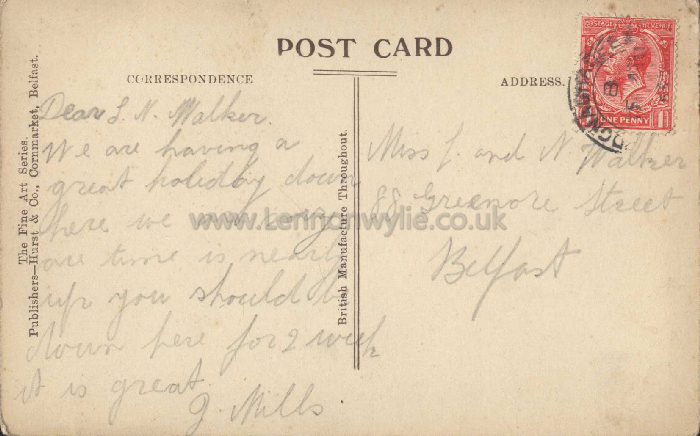 POST CARD
CORRESPONDENCE
ADDRESS.
Dear L. N. Walker.
We are having a
great holiday down
here we are
are time is nearly
up you should be
down here for 2 week
it is great.
J. Mills
Miss L. and N Walker
88 Greenore Street
Belfast
The Fine Art Series.
Publishers—Hurst & Co., Cornmarket, Belfast.
British Manufacture Throughout.
POSTAGE REVENUE
ONE PENNY
www.Lennonwylie.co.uk